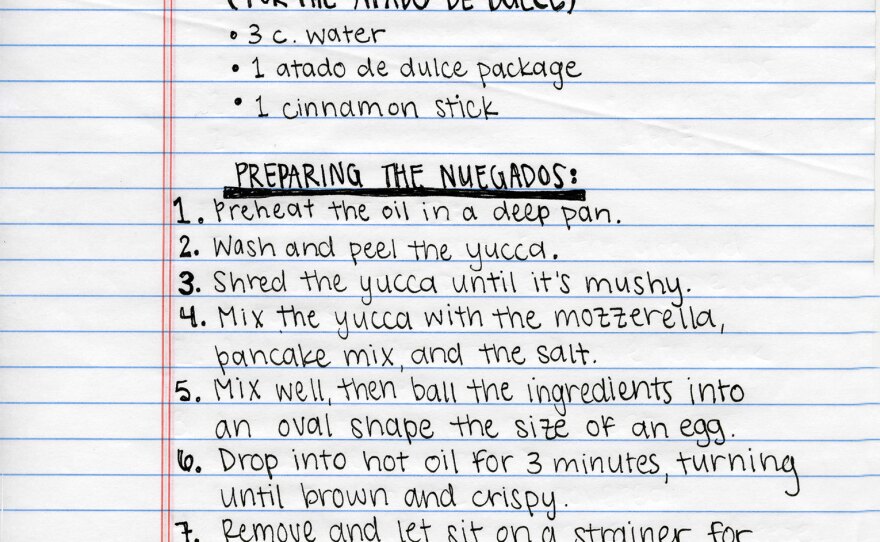 (FOR THE ATADO DE DULCE)
• 3 c. water
• 1 atado de dulce package
• 1 cinnamon stick
PREPARING THE NUEGADOS:
1. Preheat the oil in a deep pan.
2. Wash and peel the yucca.
3. Shred the yucca until it's mushy.
4. Mix the yucca with the mozzerella,
pancake mix, and the salt.
5. Mix well, then ball the ingredients into
an oval shape the size of an egg.
6. Drop into hot oil for 3 minutes, turning
until brown and crispy.
7. Remove and let sit on a strainer for